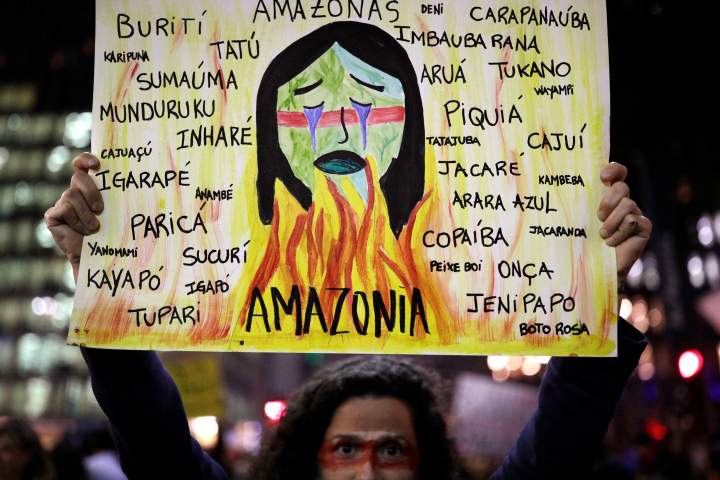 BURITÍ
AMAZONAS
DENI
CARAPANAÚBA
KARIPUNA
TATÚ
IMBAUBARANA
SUMAÚMA
ARUÁ
TUKANO
WAYAMPI
MUNDURUKU
INHARÉ
PIQUIÁ
CAJUAÇÚ
TATAJUBA
CAJUÍ
IGARAPÉ
JACARÉ
KAMBEBA
ANAMBÉ
ARARA AZUL
PARICÁ
COPAÍBA
JACARANDA
YANOMAMI
SUCURÍ
PEIXE BOI
ONÇA
KAYAPÓ
IGAPÓ
TUPARI
AMAZONIA
JENIPAPO
BOTO ROSA